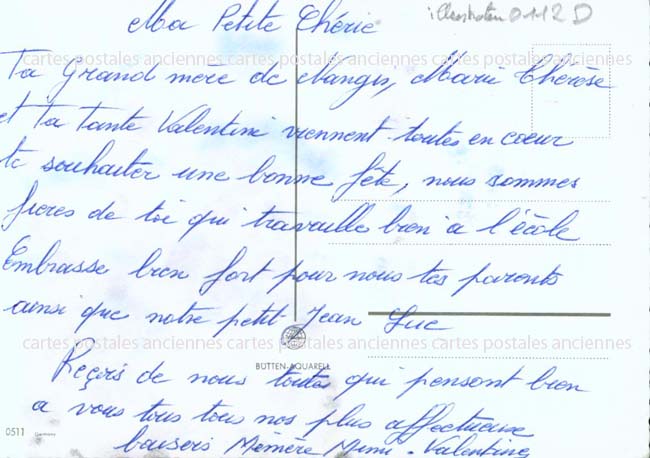 illustration 0112 D
Ma Petite Chérie
cartes postales anciennes cartes postales anciennes cartes postales anciennes
Ta Grand mère de Nangis, Marie Thérèse
et Ta Tante Valentine viennent toutes en coeur
te souhaiter une bonne fête, nous sommes
fieres de toi qui travaille bien a l'école
Embrasse bien fort pour nous tes parents
ainsi que notre petit Jean Luc
cartes postales anciennes cartes postales anciennes cartes postales anciennes
BÜTTEN-AQUARELL
Reçois de nous toutes qui pensont bien
a vous tous tous nos plus affectueuse
0511 Germany
baisers Mémère Mimi. Valentine